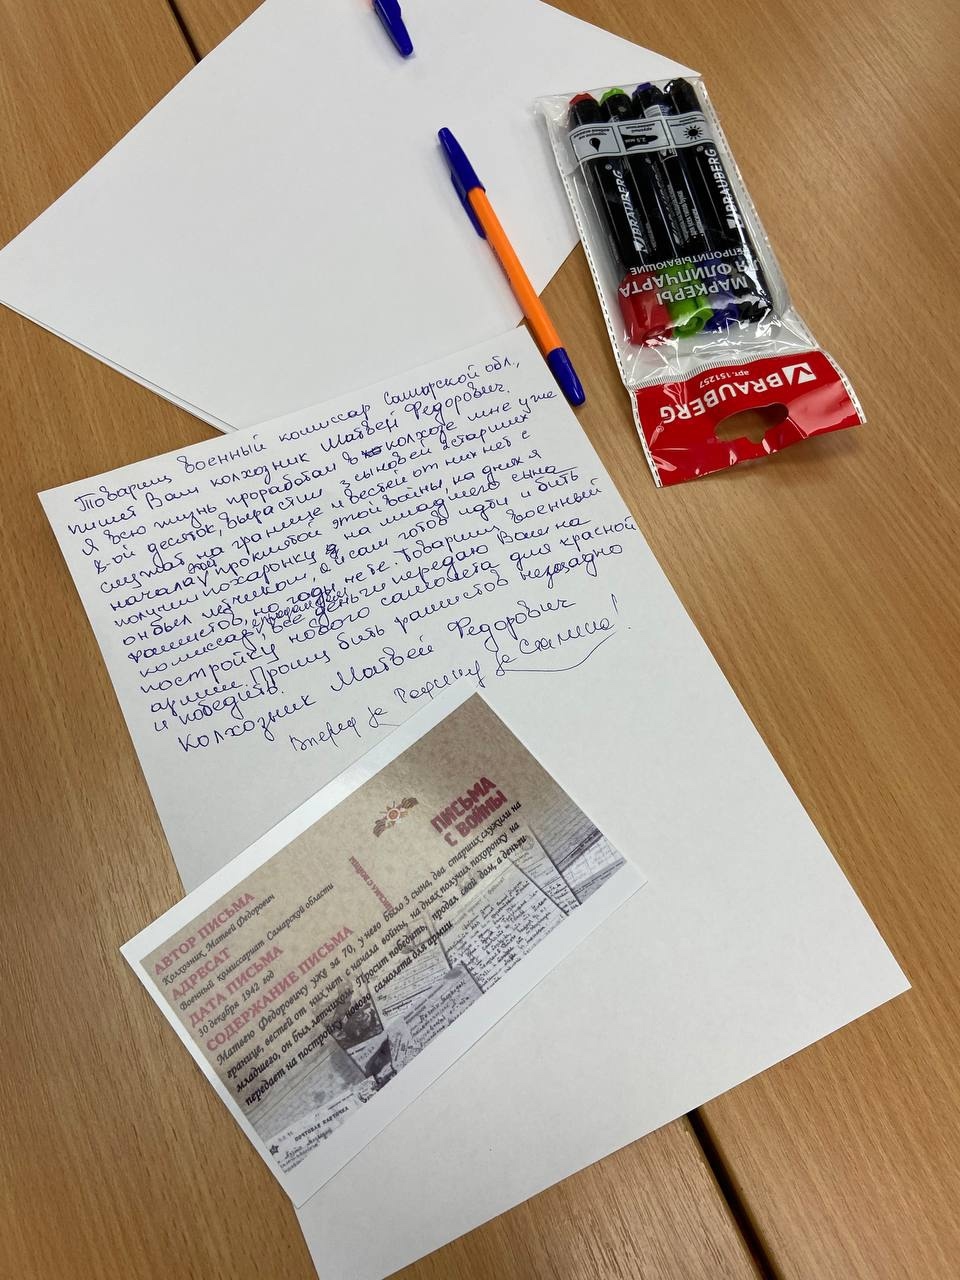 Товарищ военный комиссар Самарской обл.,
пишет Вам колхозник Матвей Федорович.
Я всю жизнь проработал в колхозе мне уже
8-ой десяток, вырастил 3 сыновей 2 старших
служат на границе и вестей от них нет с
начала этой проклятой войны, на днях я
получил похоронку на младшего сына
он был летчиком, я и сам готов идти и бить
фашистов, но годы не те. Товарищ военный
комиссар, все деньги передаю Вам на
постройку нового самолета для красной
армии. Прошу бить фашистов нещадно
и победить.
Колхозник Матвей Федорович
Вперед за Родину за Сталина!
ПИСЬМА
С ВОЙНЫ
АВТОР ПИСЬМА
Колхозник Матвей Федорович
АДРЕСАТ
Военный комиссариат Самарской области
ДАТА ПИСЬМА
30 декабря 1942 год
СОДЕРЖАНИЕ ПИСЬМА
Матвею Федоровичу уже за 70, у него было 3 сына, два старших служили на
границе, вестей от них нет с начала войны, на днях получил похоронку на
младшего, он был летчиком. Просит победить, продал свой дом, а деньги
передает на постройку нового самолета для армии
ПОЧТОВАЯ КАРТОЧКА
BRAUBERG
BRAUBERG
2,5 мм
МАРКЕРЫ
ФЛИПЧАРТА
BRAUBERG
арт. 151257